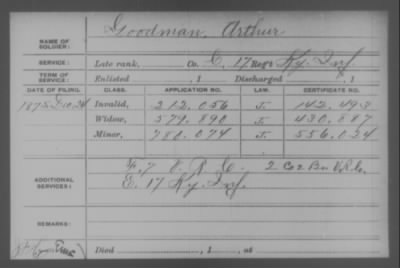 Goodman, Arthur
NAME OF
SOLDIER:
SERVICE: Late rank, Co. E, 17 Reg't Ky. Inf.
TERM OF
SERVICE: Enlisted , 1 Discharged , 1
DATE OF FILING. CLASS. APPLICATION NO. LAW. CERTIFICATE NO.
1875 Dec. 24 Invalid, 212.056 J. 142.493
Widow, 579.890 J. 430.887
Minor, 780.074 J. 556.024
ADDITIONAL
SERVICES: F. 7 V. R. C. 2 Co 2 Bn V.R.C.
E. 17 Ky. Inf.
REMARKS:
Died , 1 , at